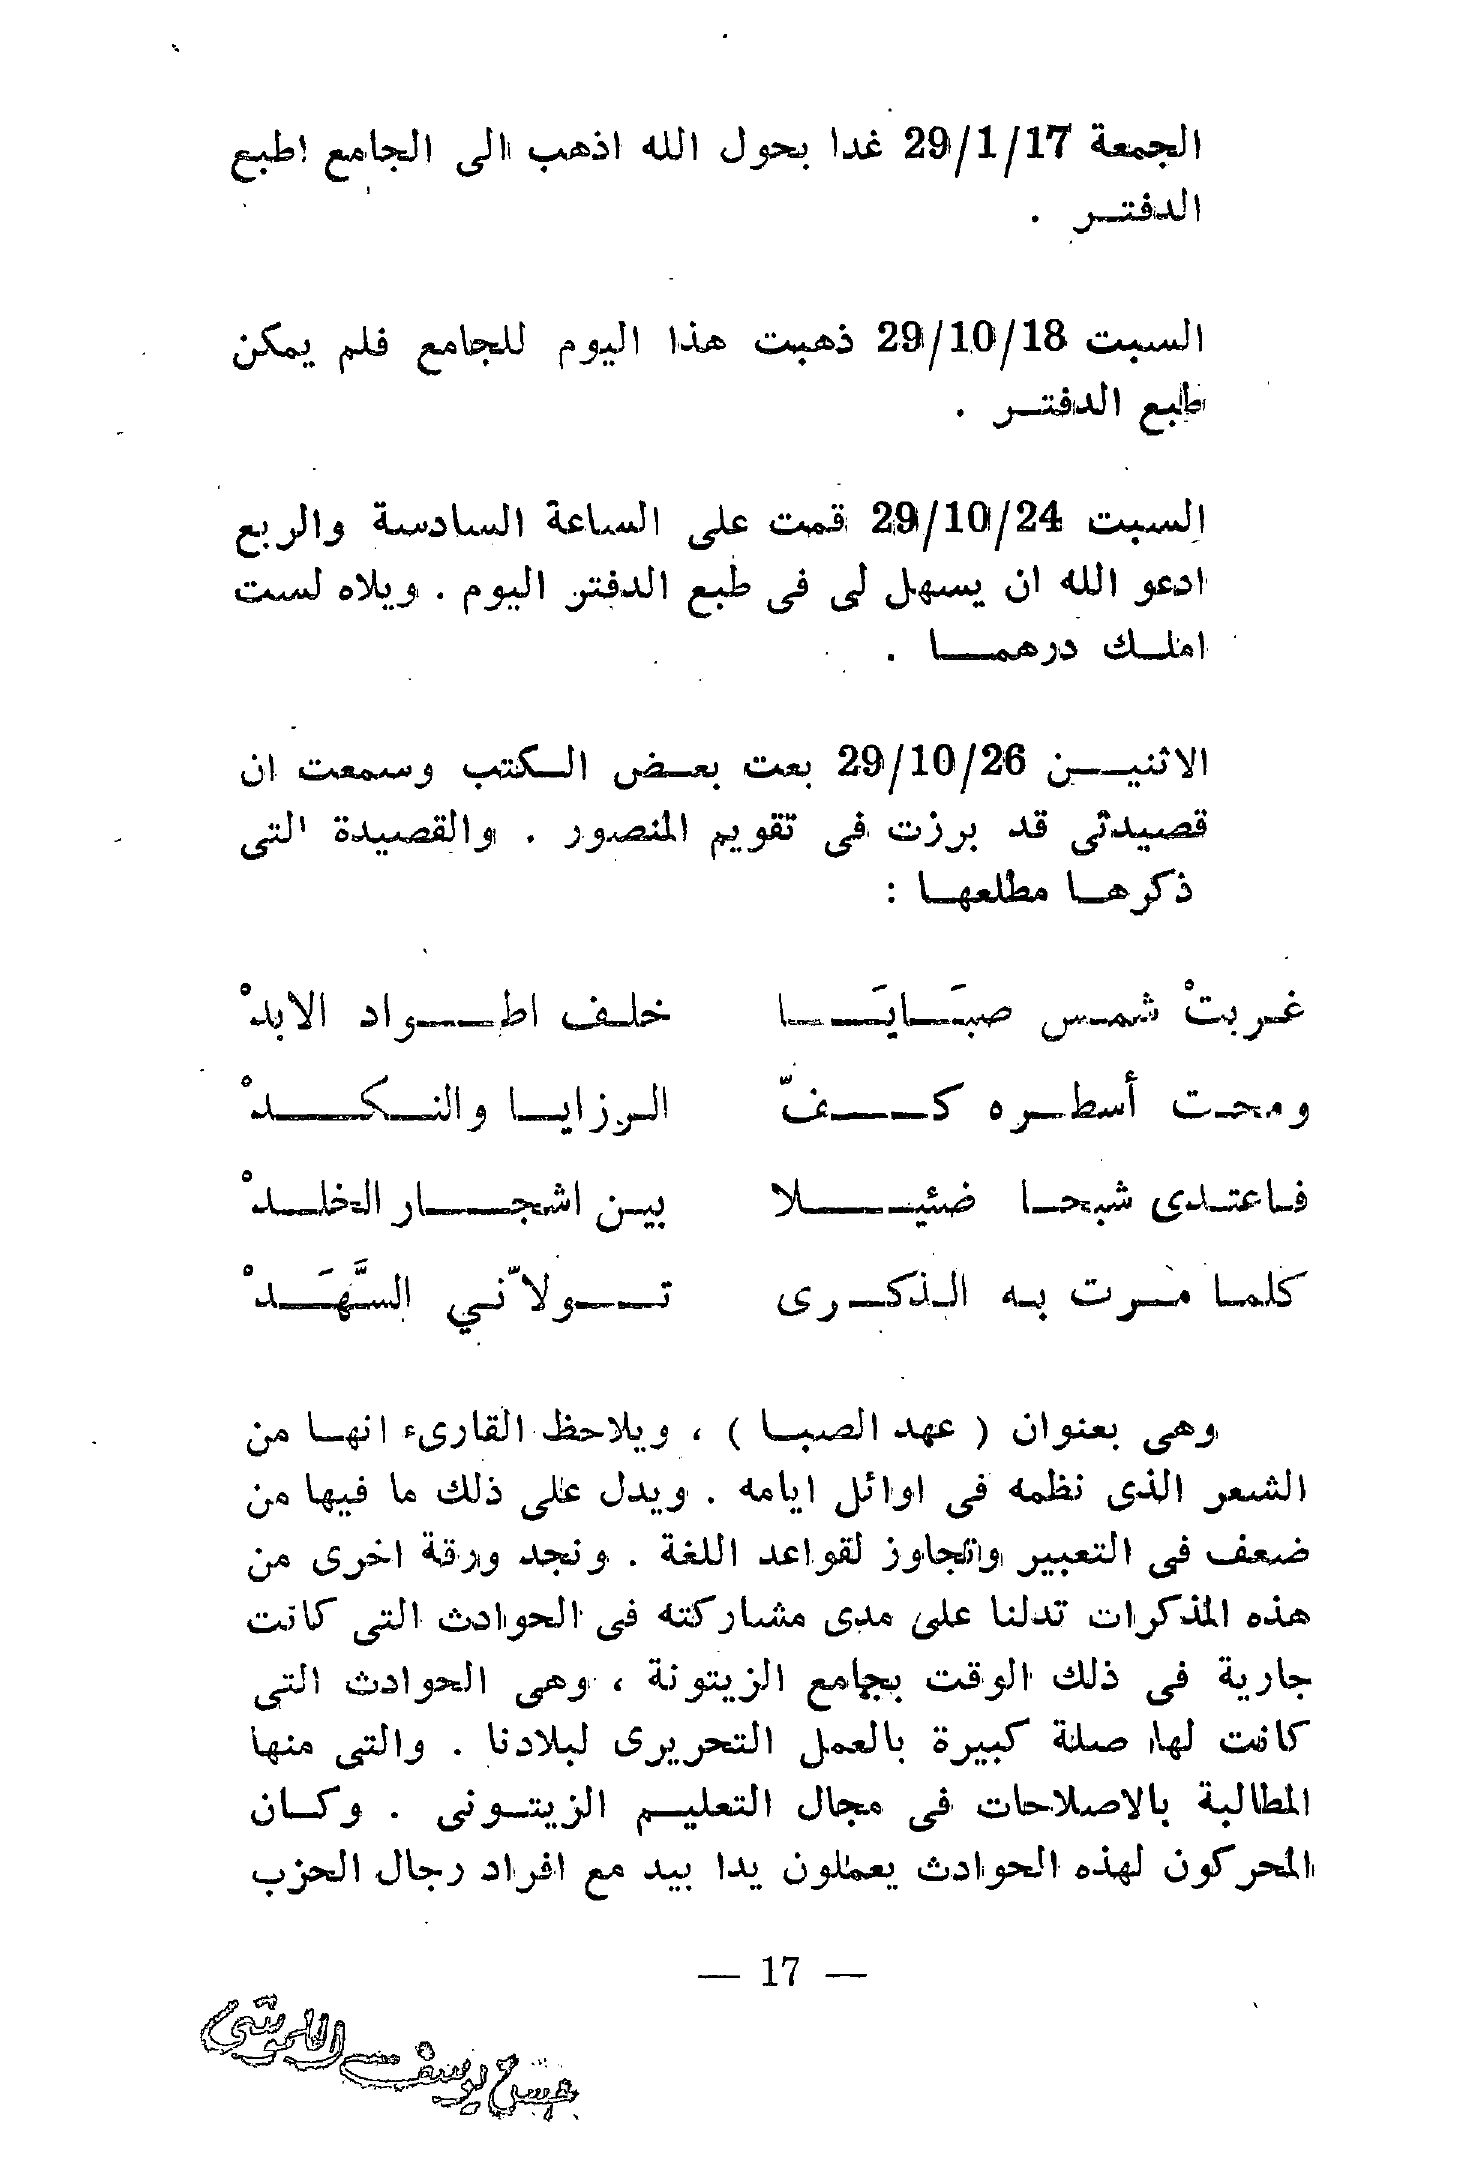 الجمعة 29/1/17 غدا بحول الله اذهب الى الجامع اطبع
الدفتـر .
السبت 29/10/18 ذهبت هذا اليوم للجامع فلم يمكن
طبع الدفتـر .
السبت 29/10/24 قمت على الساعة السادسة والربع
ادعو الله ان يسهل لى فى طبع الدفتر اليوم . ويلاه لست
املـك درهمـــا .
الاثنيـــن 29/10/26 بعت بعـض الـكتب وسمعت ان
قصيدتى قد برزت فى تقويم المنصور . والقصيدة التى
ذكرهـا مطلعهـا :
غـربتْ شمـس صبَـايَـــا خلـف اطـــواد الابدْ
ومحـت أسطـره كـــفّ الـرزايـا والنـكـــدْ
فـاعتـدى شبحـا ضئيـــلا بيـن اشجـــار الخلـــدْ
كلمـا مـرت بـه الـذكـرى تـــولاّنـي السَّهَـــدْ
وهى بعنوان ( عهد الصبـا ) ، ويلاحظ القارىء انهـا من
الشعر الذى نظمه فى اوائل ايامه . ويدل على ذلك ما فيها من
ضعف فى التعبير واتجاوز لقواعد اللغة . ونجد ورقة اخرى من
هذه المذكرات تدلنا على مدى مشاركته فى الحوادث التى كانت
جارية فى ذلك الوقت بجامع الزيتونة ، وهى الحوادث التى
كانت لها صلة كبيرة بالعمل التحريرى لبلادنا . والتى منها
المطالبة بالاصلاحات فى مجال التعليـم الزيتـونى . وكـان
المحركون لهذه الحوادث يعملون يدا بيد مع افراد رجال الحزب
— 17 —